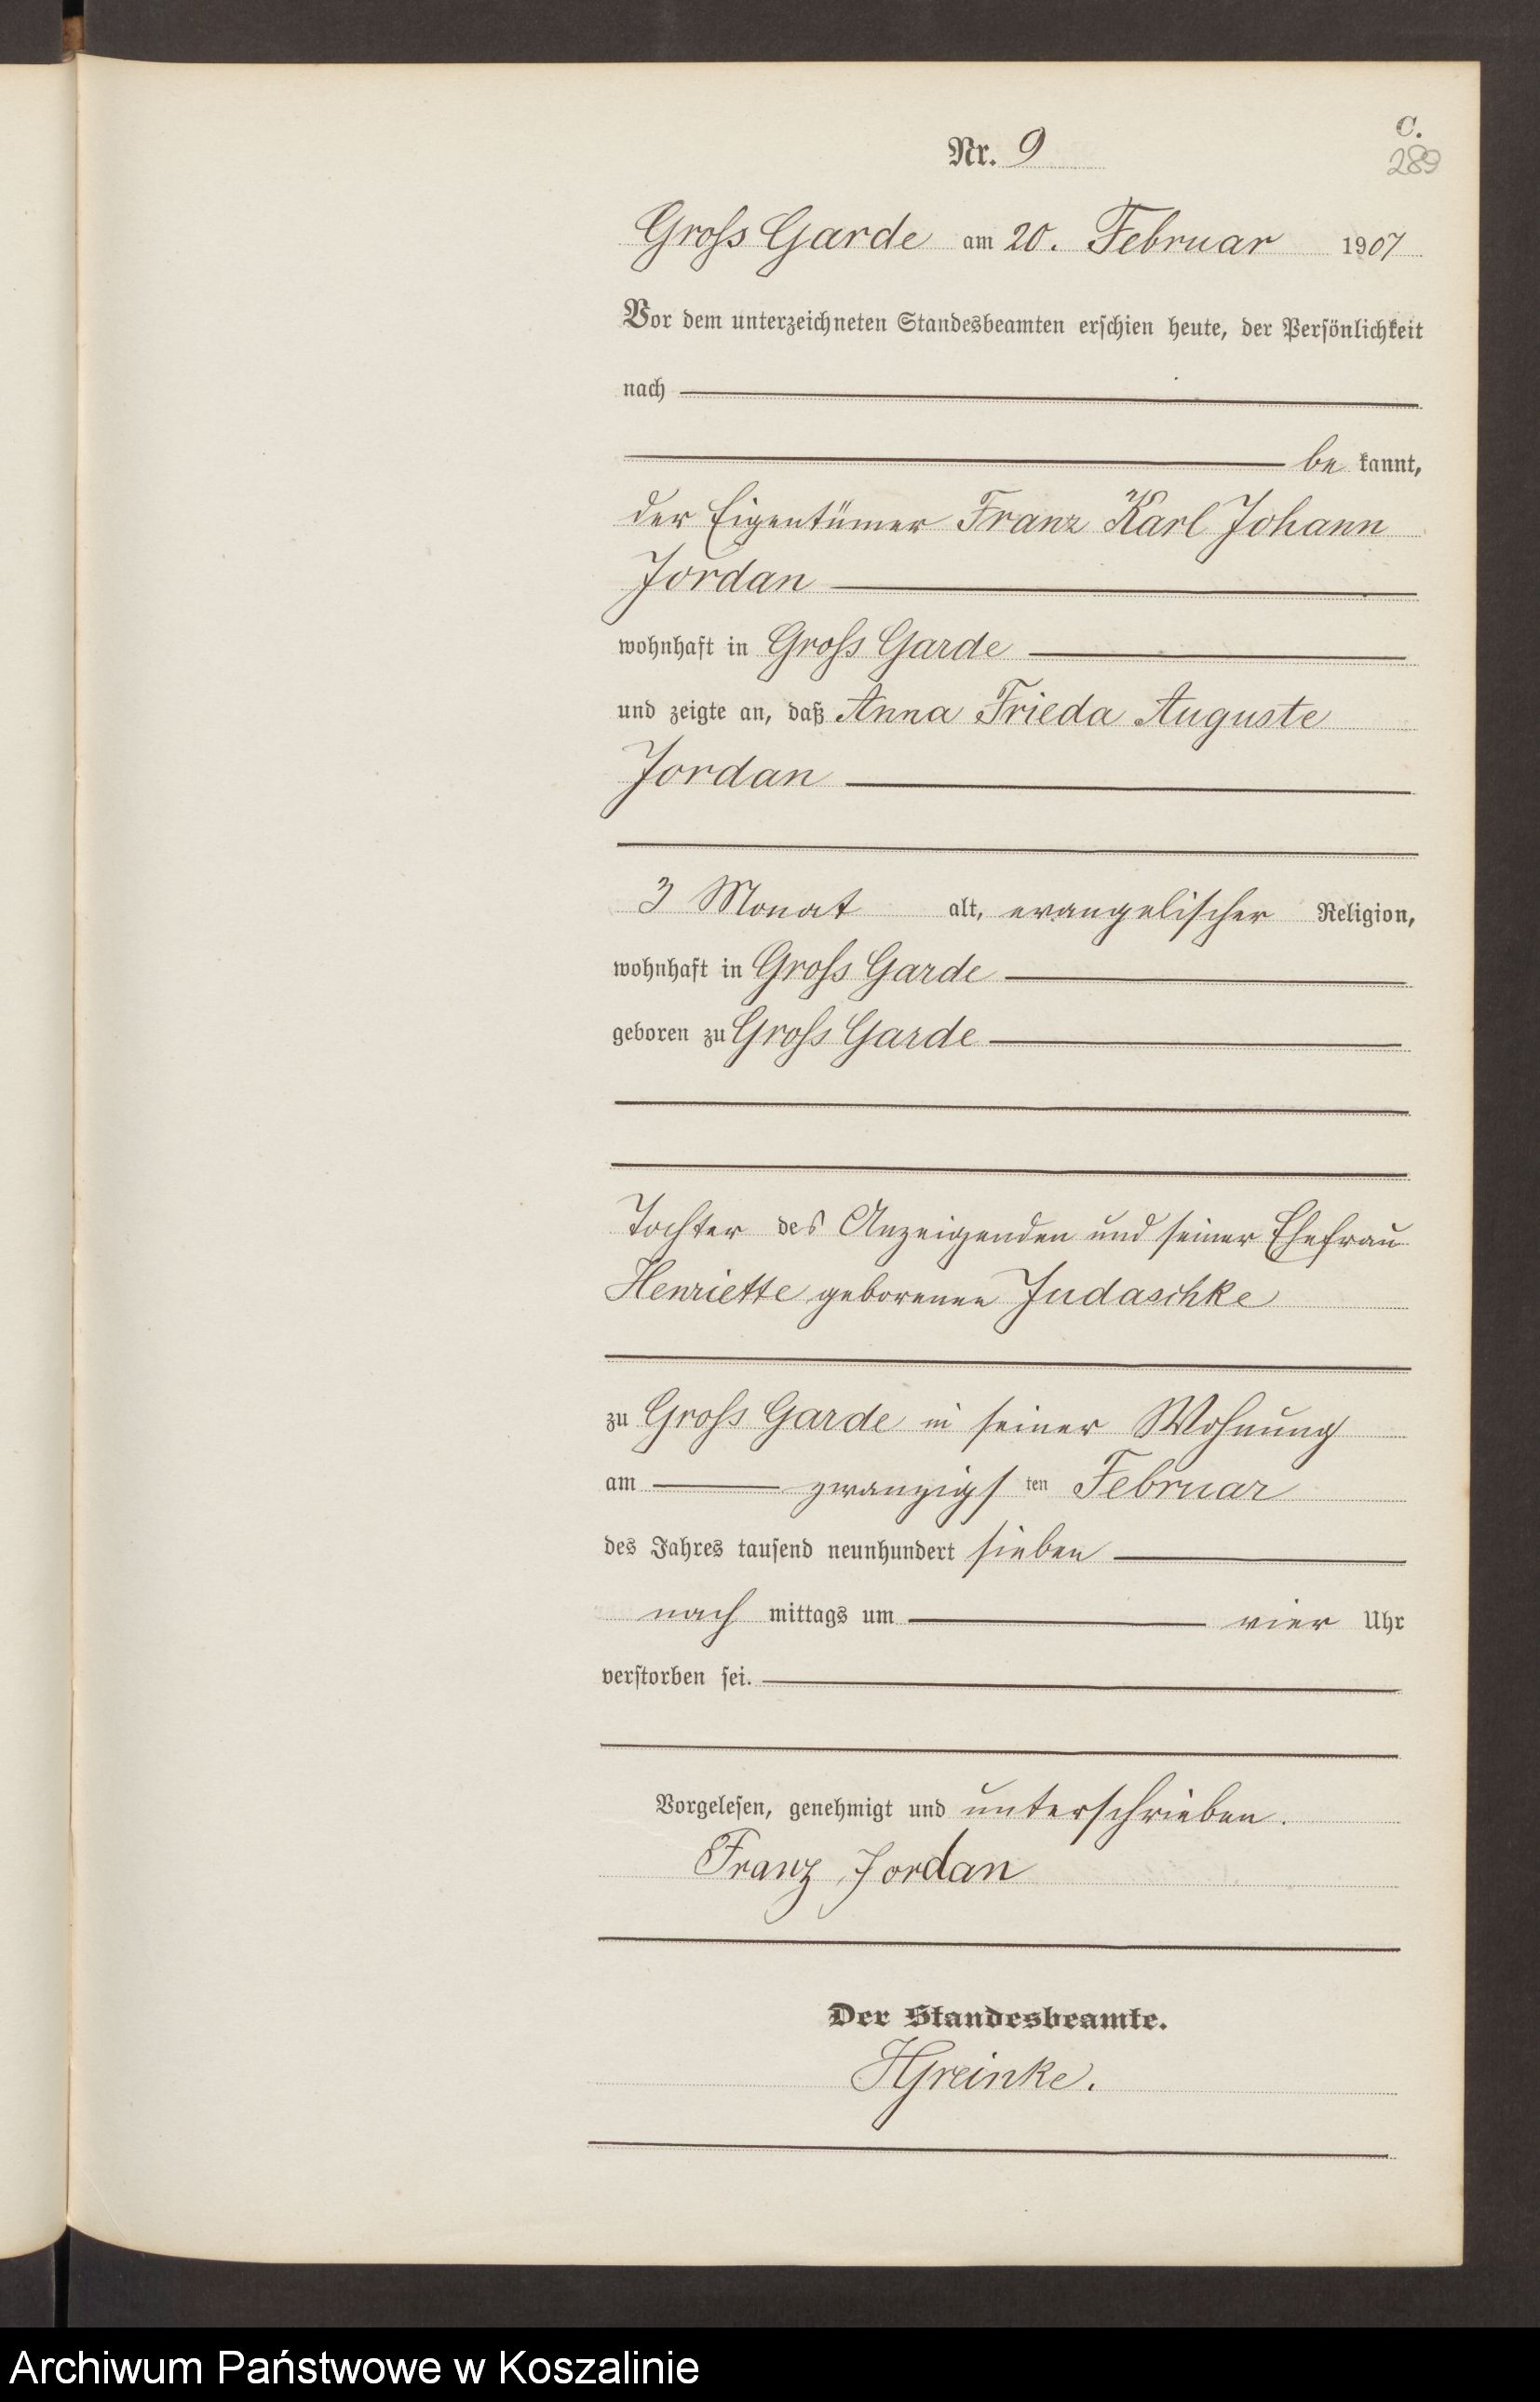 C.
Nr. 9
289
Gross Garde am 20. Februar 1907
Vor dem unterzeichneten Standesbeamten erschien heute, der Persönlichkeit
nach
be kannt,
der Eigentümer Franz Karl Johann
Jordan
wohnhaft in Gross Garde
und zeigte an, daß Anna Frieda Auguste
Jordan
3 Monat alt, evangelischer Religion,
wohnhaft in Gross Garde
geboren zu Gross Garde
Tochter des Anzeigenden und seiner Ehefrau
Henriette geborenen Judaschke
zu Gross Garde in seiner Wohnung
am zwanzigsten Februar
des Jahres tausend neunhundert sieben
nach mittags um vier Uhr
verstorben sei.
Vorgelesen, genehmigt und unterschrieben.
Franz Jordan
Der Standesbeamte.
HGreinke.
Archiwum Państwowe w Koszalinie